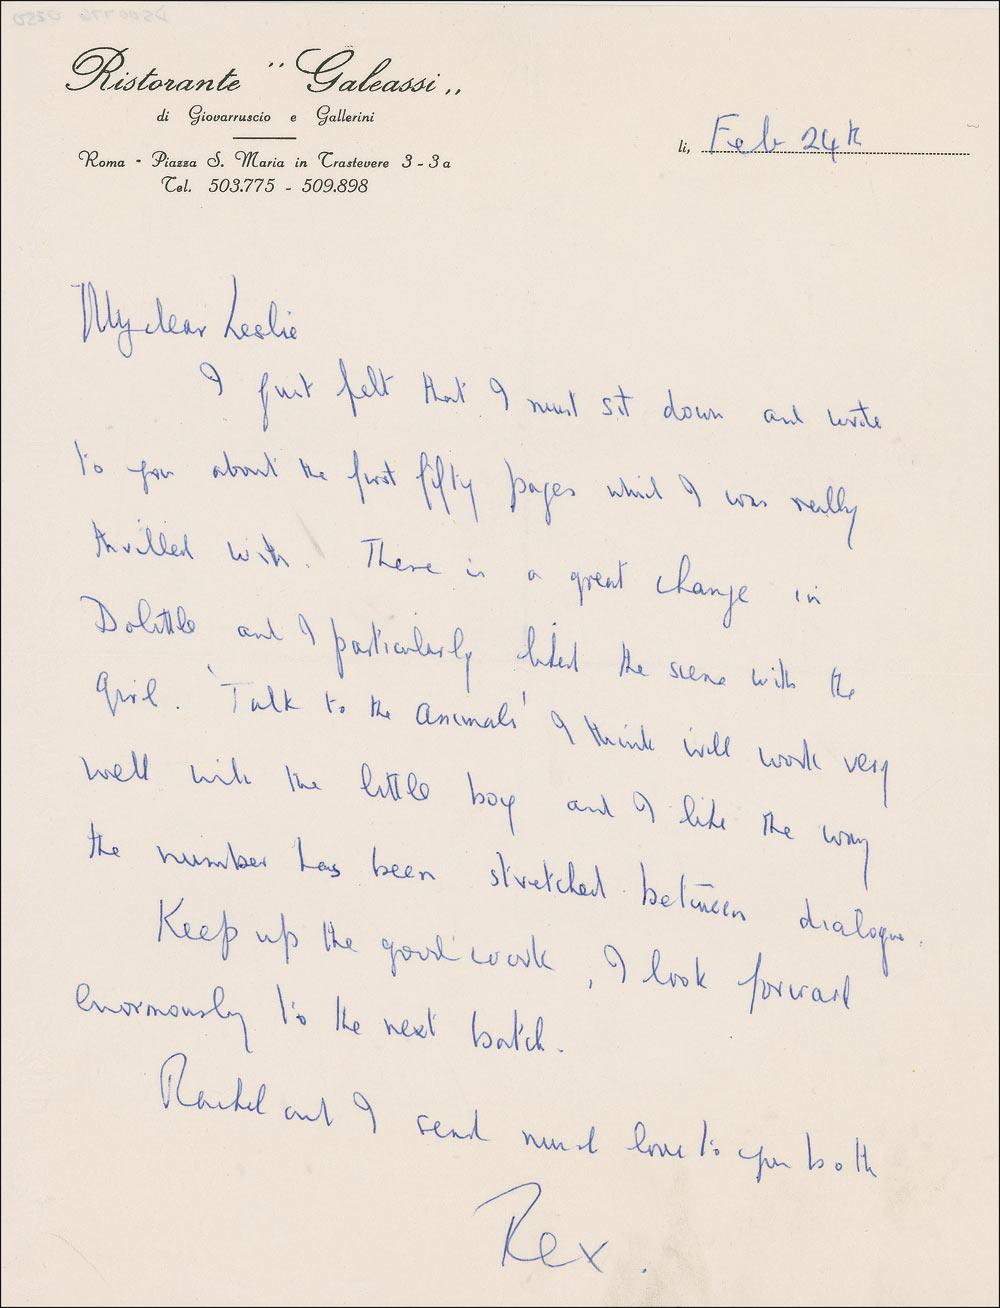 Ristorante " Galeassi „
di Giovarruscio e Gallerini
Roma - Piazza S. Maria in Trastevere 3 - 3 a
Tel. 503.775 - 509.898
li, Feb 24th
My dear Leslie
I just felt that I must sit down and write
to you about the first fifty pages which I was really
thrilled with. There is a great change in
Dolittle and I particularly liked the scene with the
girl. 'Talk to the Animals' I think will work very
well with the little boy and I like the way
the number has been stretched between dialogue.
Keep up the good work, I look forward
enormously to the next batch.
Rachel and I send much love to you both
Rex.